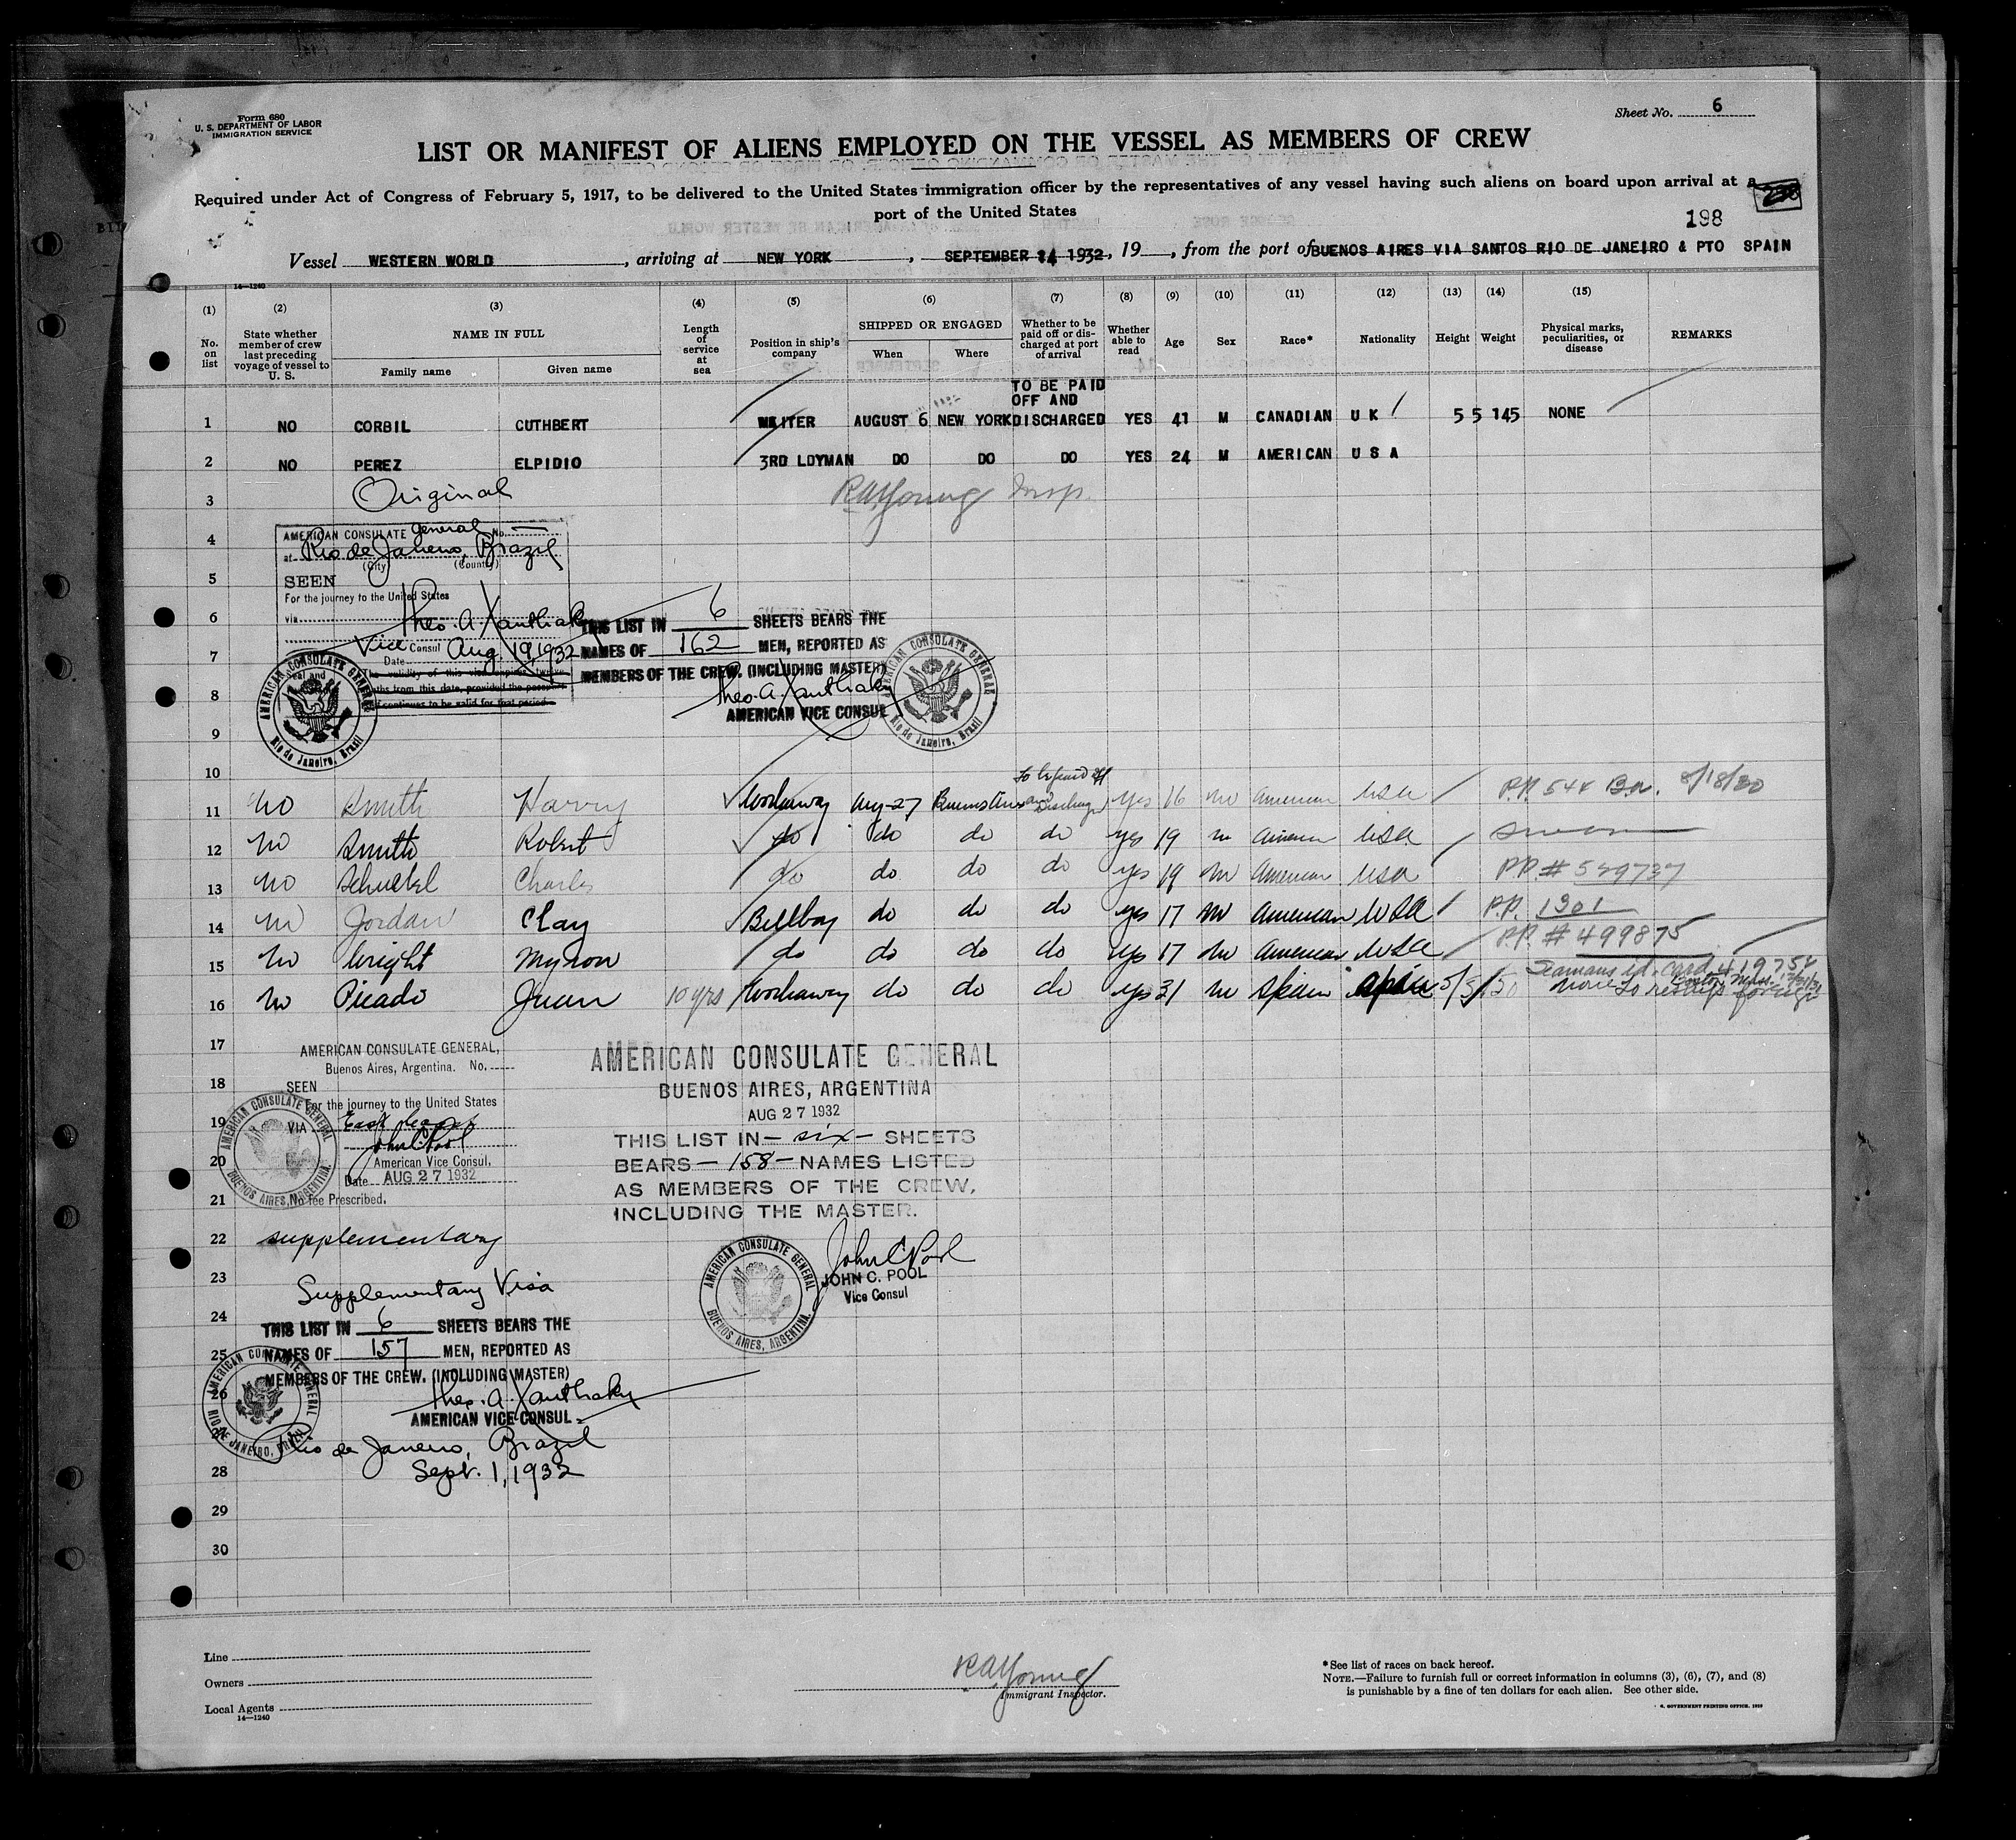 Form 680
U. S. DEPARTMENT OF LABOR
IMMIGRATION SERVICE
Sheet No. 6
LIST OR MANIFEST OF ALIENS EMPLOYED ON THE VESSEL AS MEMBERS OF CREW
Required under Act of Congress of February 5, 1917, to be delivered to the United States immigration officer by the representatives of any vessel having such aliens on board upon arrival at a
port of the United States
198
Vessel WESTERN WORLD, arriving at NEW YORK, SEPTEMBER 14 1932, 19, from the port of BUENOS AIRES VIA SANTOS RIO DE JANEIRO & PTO SPAIN
14—1240
(1) (2) (3) (4) (5) (6) (7) (8) (9) (10) (11) (12) (13) (14) (15)
No. on list
State whether member of crew last preceding voyage of vessel to U. S.
NAME IN FULL
Family name
Given name
Length of service at sea
Position in ship's company
SHIPPED OR ENGAGED
When
Where
Whether to be paid off or discharged at port of arrival
Whether able to read
Age
Sex
Race*
Nationality
Height
Weight
Physical marks, peculiarities, or disease
REMARKS
TO BE PAID
OFF AND
1 NO CORBIL CUTHBERT WAITER AUGUST 6 NEW YORK DISCHARGED YES 41 M CANADIAN U K 5 5 145 NONE
2 NO PEREZ ELPIDIO 3RD LDYMAN DO DO DO YES 24 M AMERICAN U S A
3 Original R A Young Insp.
4 AMERICAN CONSULATE General No.
at Rio de Janeiro, Brazil
(City) (Country)
5 SEEN
For the journey to the United States
6 via
Theo. A. Xanthaky
THIS LIST IN 6 SHEETS BEARS THE
7 Vice Consul
Date Aug 19, 1932
NAMES OF 162 MEN, REPORTED AS
MEMBERS OF THE CREW. (INCLUDING MASTER)
The validity of this visa expires twelve
months from this date, provided the passport
continues to be valid for that period.
8 Theo. A. Xanthaky
AMERICAN VICE CONSUL
AMERICAN CONSULATE GENERAL
Rio de Janeiro, Brazil
AMERICAN CONSULATE GENERAL
Rio de Janeiro, Brazil
9
10
To be paid off
11 No Smith Harry Workaway Aug-27 Buenos Aires and Discharged Yes 16 m American USA P.P. 548 B.A. 8/18/30
12 No Smith Robert do do do do yes 19 m American USA
13 No Charles do do do do yes 19 m American USA P.P. # 529737
14 No Jordan Clay Bellboy do do do yes 17 m American USA P.P. 1301
15 No Wright Myron do do do do yes 17 m American USA P.P. # 499875
Seamans id. card
16 No Picado Juan 10 yrs Workaway do do do yes 31 m Spain Spain
17 AMERICAN CONSULATE GENERAL,
Buenos Aires, Argentina. No.
18 SEEN
For the journey to the United States
19 VIA East
John C Pool
20 American Vice Consul.
Date AUG 27 1932
21 No fee Prescribed.
AMERICAN CONSULATE GENERAL
BUENOS AIRES, ARGENTINA.
AMERICAN CONSULATE GENERAL
BUENOS AIRES, ARGENTINA
AUG 27 1932
THIS LIST IN — six — SHEETS
BEARS — 158 — NAMES LISTED
AS MEMBERS OF THE CREW,
INCLUDING THE MASTER.
John C Pool
JOHN C. POOL
Vice Consul
AMERICAN CONSULATE GENERAL
BUENOS AIRES, ARGENTINA.
22 supplementary
23 Supplementary Visa
24 THIS LIST IN 6 SHEETS BEARS THE
25 NAMES OF 157 MEN, REPORTED AS
MEMBERS OF THE CREW. (INCLUDING MASTER)
26 Theo. A. Xanthaky
AMERICAN VICE CONSUL
AMERICAN CONSULATE GENERAL
RIO DE JANEIRO, BRAZIL
Rio de Janeiro, Brazil
28 Sept. 1, 1932
29
30
Line
Owners
Local Agents
14—1240
R A Young
Immigrant Inspector.
*See list of races on back hereof.
NOTE.—Failure to furnish full or correct information in columns (3), (6), (7), and (8)
is punishable by a fine of ten dollars for each alien. See other side.